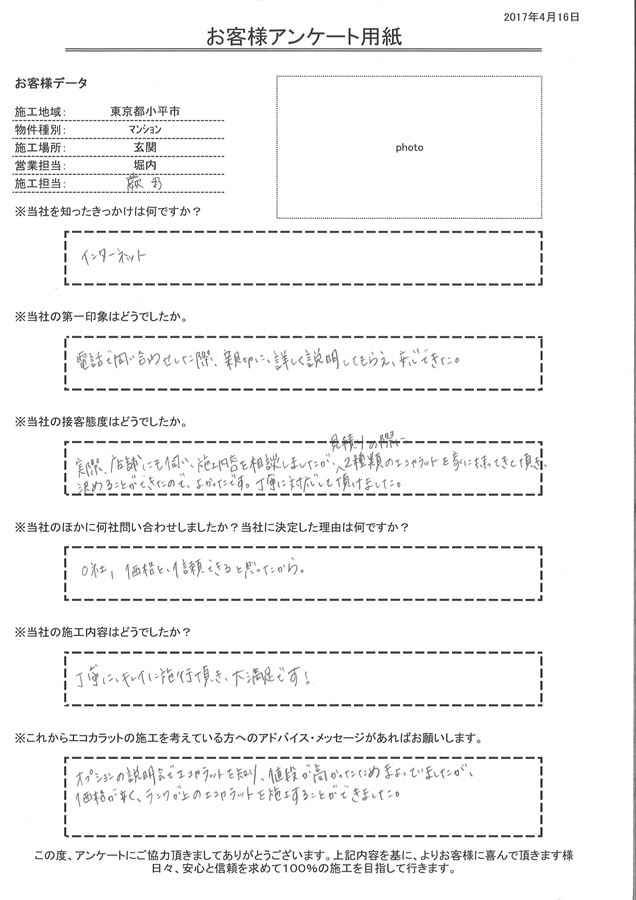 2017年4月16日
お客様アンケート用紙
お客様データ
施工地域： 東京都小平市
物件種別： マンション
施工場所： 玄関
営業担当： 堀内
施工担当：
photo
※当社を知ったきっかけは何ですか？
インターネット
※当社の第一印象はどうでしたか。
電話で問い合わせした際、親切に、詳しく説明してもらえ、安心できた。
※当社の接客態度はどうでしたか。
見積りの際に
実際、店舗にも伺い、施工内容を相談しましたが、2種類のエコカラットを家に持ってきて頂き、
決めることができたので、よかったです。丁寧に対応して頂けました。
※当社のほかに何社問い合わせしましたか？当社に決定した理由は何ですか？
0社、価格と、信頼できると思ったから。
※当社の施工内容はどうでしたか？
丁寧に、キレイに施行頂き、大満足です！
※これからエコカラットの施工を考えている方へのアドバイス・メッセージがあればお願いします。
オプションの説明会でエコカラットを知り、値段が高かったため迷っていましたが、
価格が安く、ランクが上のエコカラットを施工することができました。
この度、アンケートにご協力頂きましてありがとうございます。上記内容を基に、よりお客様に喜んで頂きます様
日々、安心と信頼を求めて100％の施工を目指して行きます。